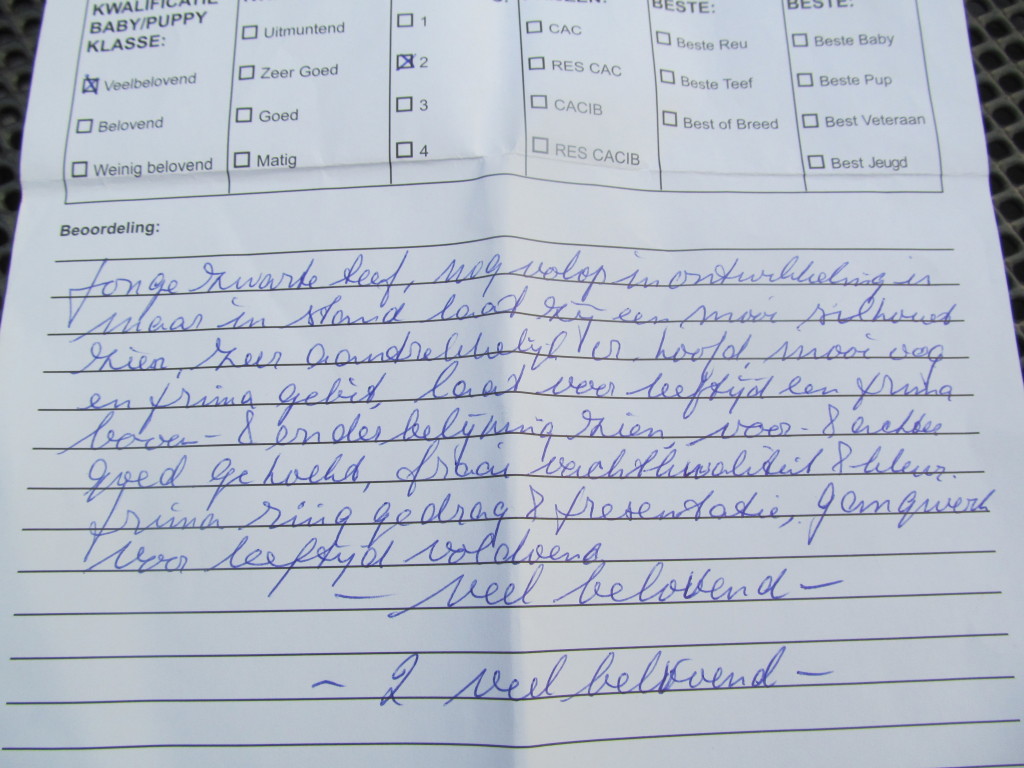 KWALIFICATIE
BABY/PUPPY
KLASSE:
Veelbelovend
Belovend
Weinig belovend
Uitmuntend
Zeer Goed
Goed
Matig
1
2
3
4
CAC
RES CAC
CACIB
RES CACIB
BESTE:
Beste Reu
Beste Teef
Best of Breed
BESTE:
Beste Baby
Beste Pup
Best Veteraan
Best Jeugd
Beoordeling:
Jonge zwarte teef, nog volop in ontwikkeling is
maar in stand laat zij een mooi silhouet
zien, zeer aantrekkelijk vr. hoofd, mooi oog
en prima gebit, laat voor leeftijd een prima
boven- & onderbelijning zien, voor- & achter
goed gehoekt, fraai vachtkwaliteit & kleur.
prima ring gedrag & presentatie, gangwerk
voor leeftijd voldoend
- veel belovend -
- 2 veel belovend -